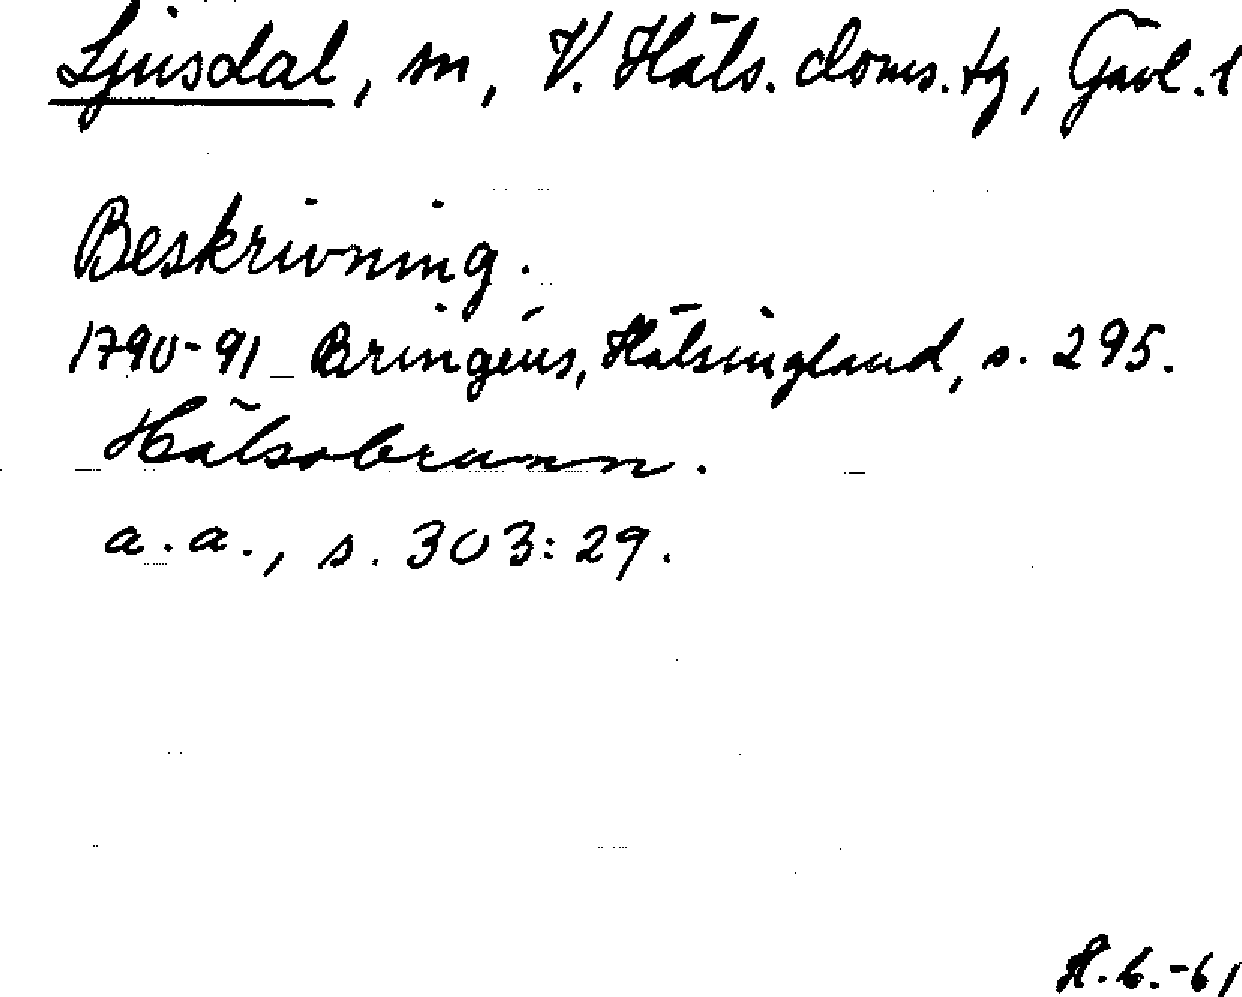 Ljusdal, sn, V. Häls. doms. tg, Gävl. l
Beskrivning.
1790-91 Bringéus, Hälsingland, s. 295.
Hälsobrunn.
a.a., s. 303:29.
H.b.-61